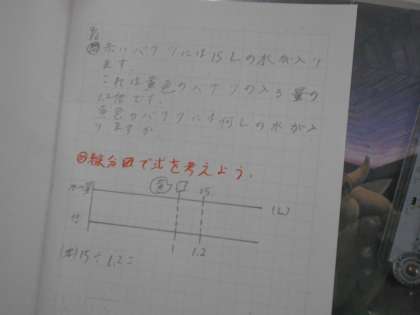 赤いバケツには15Lの水が入り
ます。
これは黄色のバケツの入る量の
1.2倍です。
黄色のバケツには何Lの水が入
りますか
で式を考えよう。
水の量 黄 □ 15 (L)
倍 1 1.2
(式) 15 ÷ 1.2 =